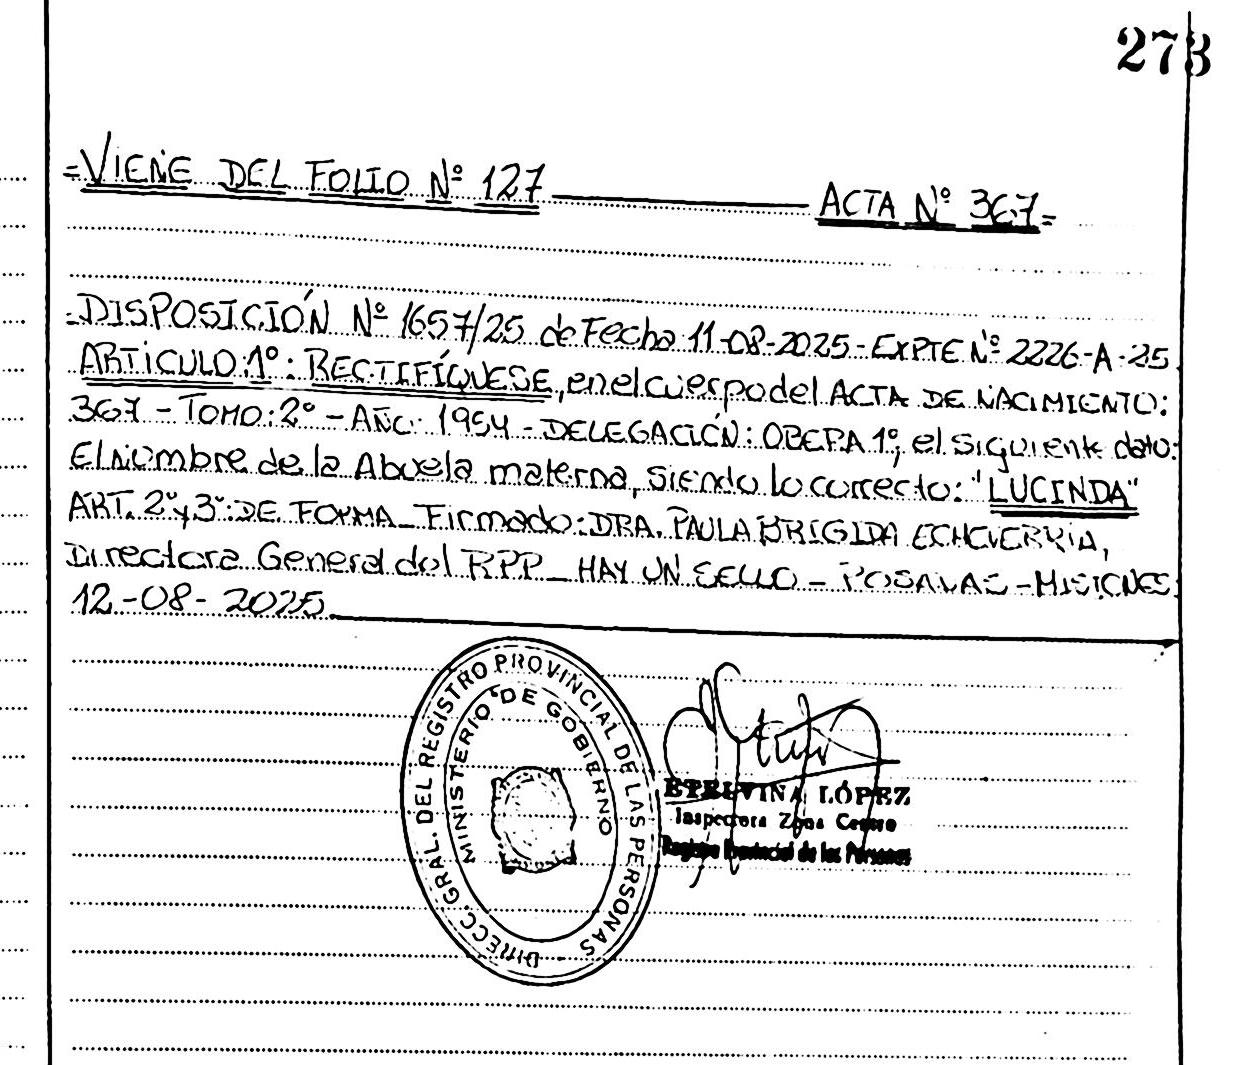 273
=VIENE DEL FOLIO Nº 127 ACTA Nº 367=
=DISPOSICIÓN Nº 1657/25 de Fecha 11-08-2025-EXPTE Nº 2226-A-25
ARTICULO:1º: RECTIFÍQUESE, en el cuerpo del ACTA DE NACIMIENTO:
367-TOMO:2º-AÑO: 1954-DELEGACIÓN: OBERA 1º, el siguiente dato:
El nombre de la Abuela materna, siendo lo correcto: "LUCINDA"
ART. 2º y 3º: DE FORMA_Firmado: DRA. PAULA BRIGIDA ECHEVERRIA,
Directora General del RPP_HAY UN SELLO-POSADAS-MISIONES
12-08-2025
DIRECC. GRAL. DEL REGISTRO PROVINCIAL DE LAS PERSONAS -
MINISTERIO DE GOBIERNO
ETELVINA LÓPEZ
Inspectora Zona Centro
Registro Provincial de las Personas